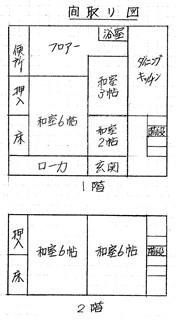 間取り図
浴室
便所
フロアー
ダイニングキッチン
押入
和室3帖
床
和室6帖
和室2帖
階段
ローカ
玄関
1階
押入
和室6帖
和室6帖
階段
床
2階